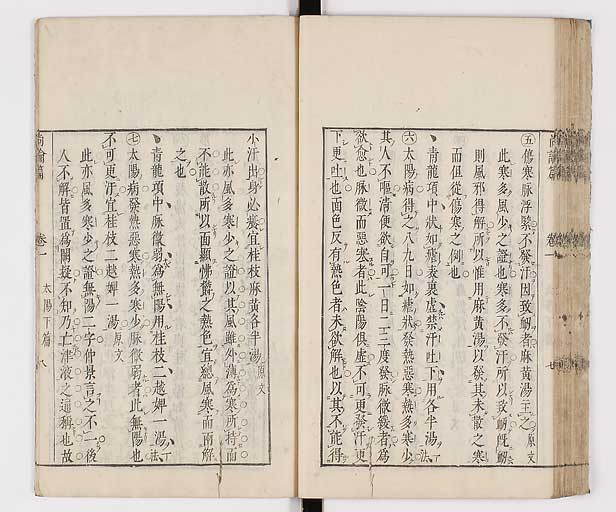 五傷寒脉浮緊不發汗因致衂者麻黄湯主之原文
此寒多風少之證也寒多不發汗所以致衂旣衂
則風邪得解所以惟用麻黄湯以發其未散之寒
而但從傷寒之例也
青龍項中狀如瘧表裏虛禁汗吐下用各半湯法
六太陽病得之八九日如瘧狀發熱惡寒熱多寒少
其人不嘔淸便欲自可一日二三度發脉微緩者爲
欲愈也脉微而惡寒者此陰陽俱虛不可更發汗更
下更吐也面色反有熱色者未欲解也以其不能得
小汗出身必痒宜桂枝麻黄各半湯原文
此亦風多寒少之證以其風雖外薄爲寒所持而
不能散所以面顯怫鬱之熱色宜總風寒而兩解
之也
青龍項中脉微弱爲無陽用桂枝二越婢一湯法
七太陽病發熱惡寒熱多寒少脉微弱者此無陽也
不可更汗宜桂枝二越婢一湯原文
此亦風多寒少之證無陽二字仲景言之不一後
人不解皆置爲闕疑不知乃亡津液之通稱也故
尚論篇 卷一 太陽下篇 八